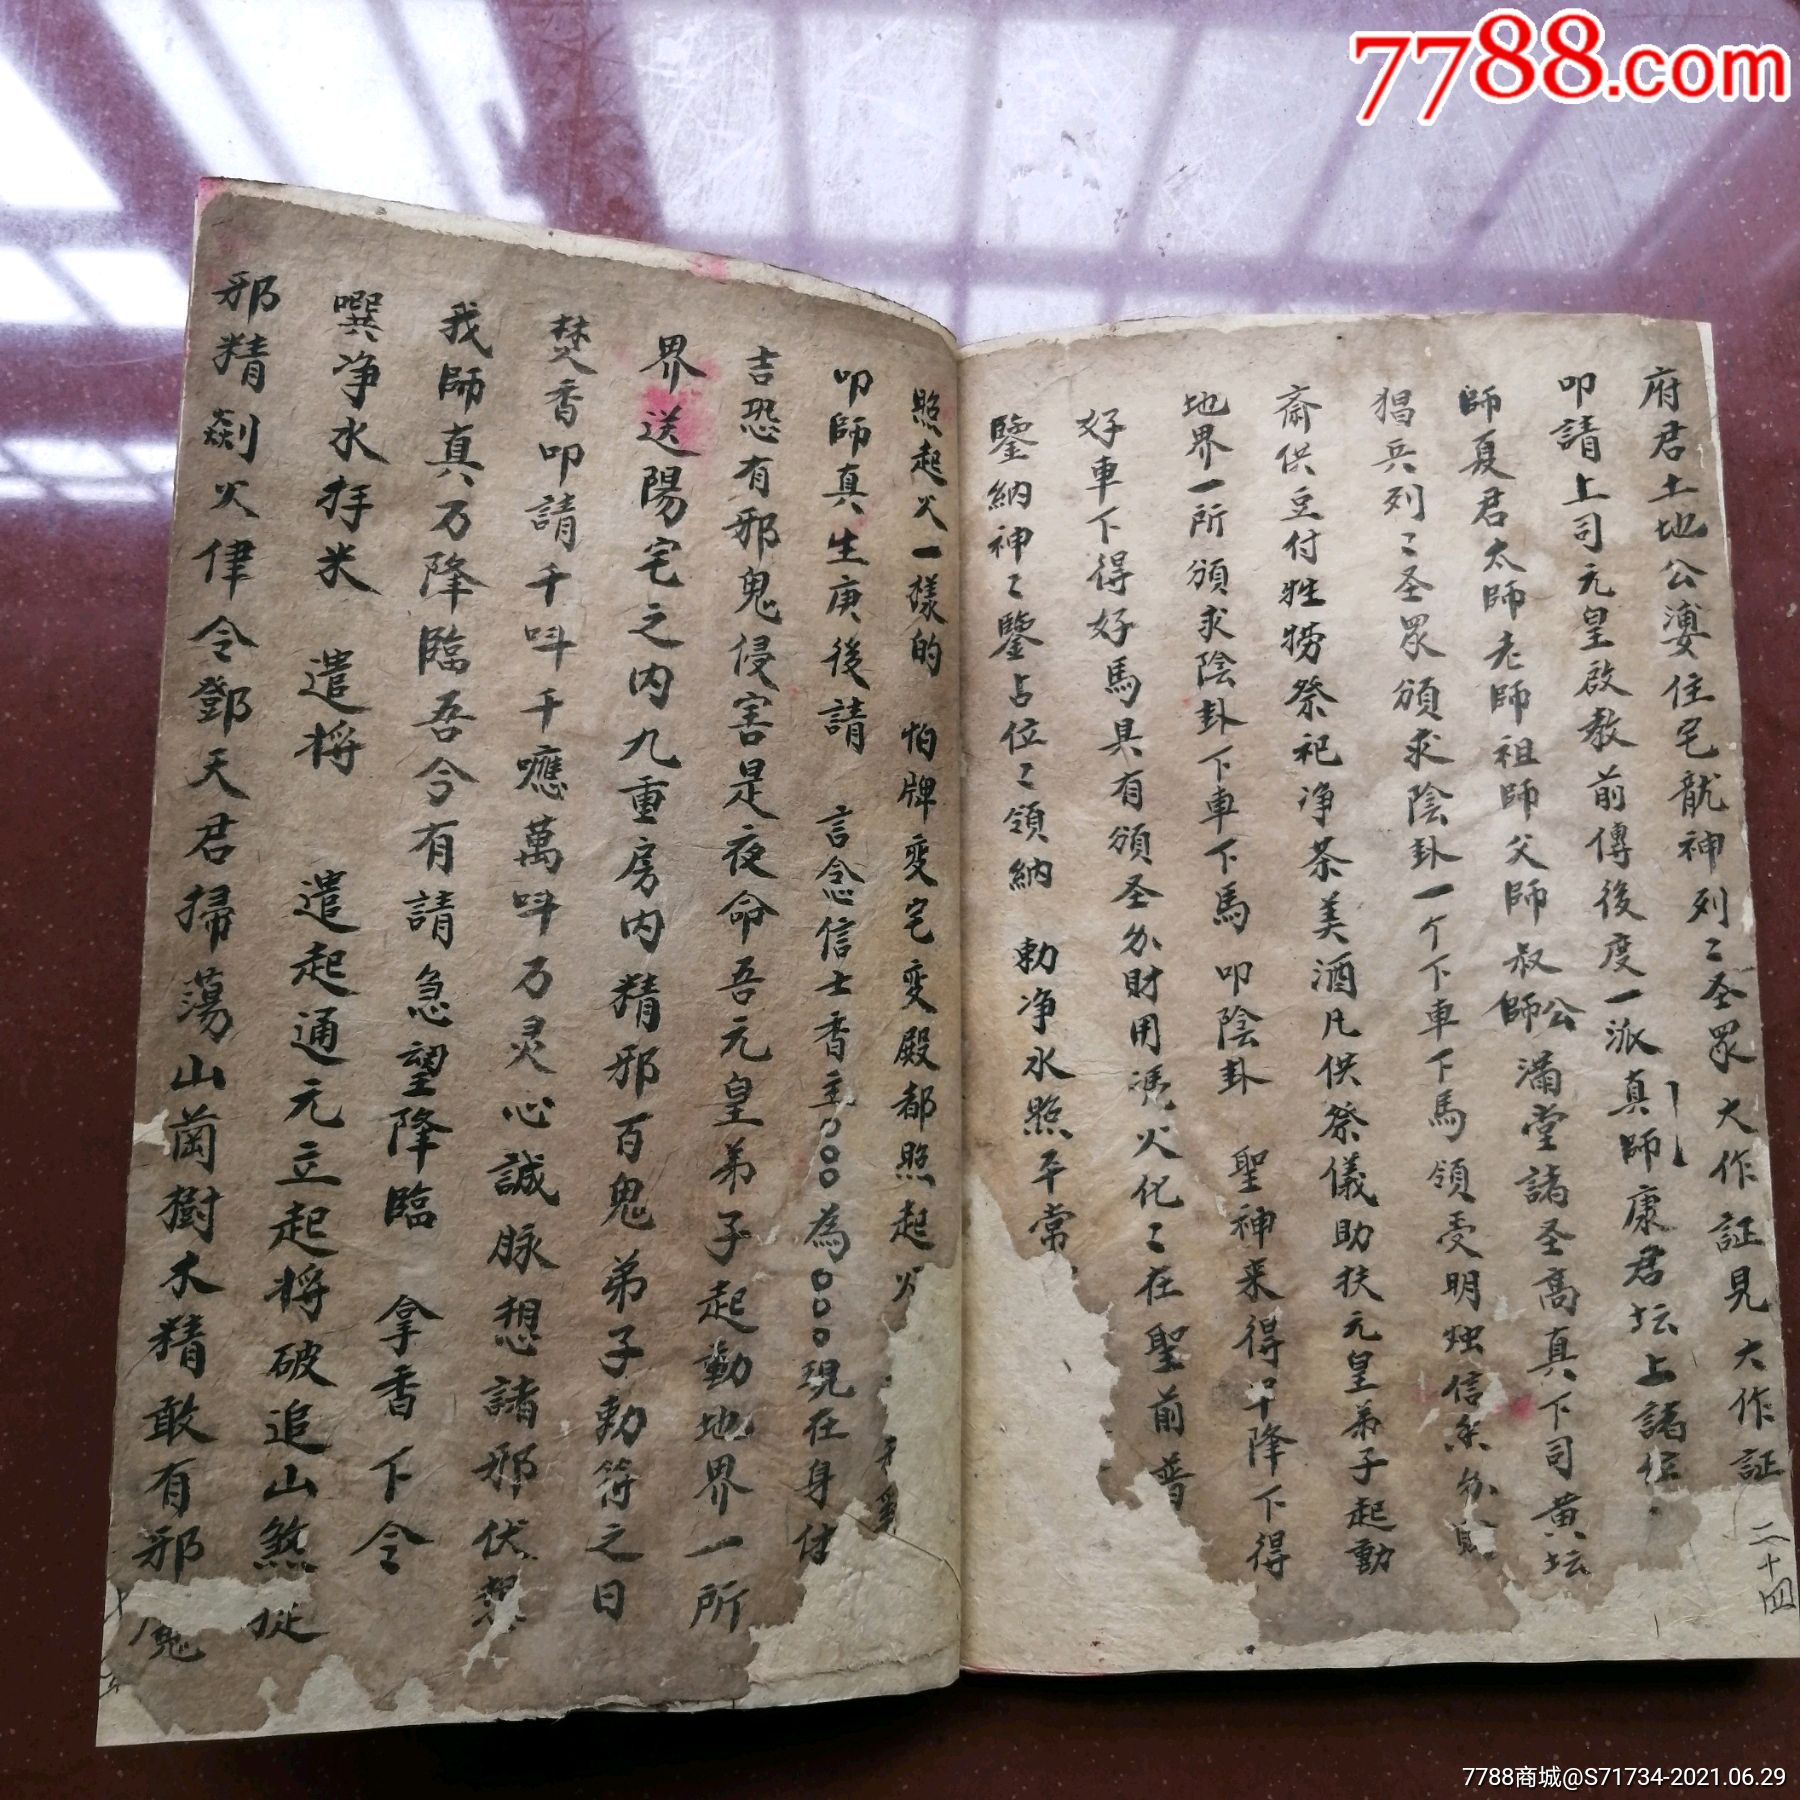 7788.com
府君土地公婆住宅龍神列〻圣眾大作証見大作証
叩請上司元皇啟教前傳後度一派真師康君坛上諸位
師夏君太師老師祖師父師叔師公滿堂諸圣高真下司黄坛
猖兵列〻圣眾頒求陰卦一个下車下馬領受明烛信香分財
斋供豆付牲捞祭祀净茶美酒凡供祭儀助扶元皇弟子起動
地界一所頒求陰卦下車下馬 叩陰卦 聖神来得早降下得
好車下得好馬具有頒圣分財用凭火化〻在聖前普
鑒納神〻鑒占位〻領納 勅净水照平常
二十四
照起火一樣的 怕牌变宅变殿都照起火
叩師真生庚後請 言念信士香主〇〇〇為〇〇〇現在身体
吉恐有邪鬼侵害是夜命吾元皇弟子起動地界一所
界送陽宅之内九重房内精邪百鬼弟子勅符之日
焚香叩請千呌千應萬呌万灵心誠脉想諸邪伏
我師真乃降臨吾今有請急望降臨 拿香下令
噀净水抙米 遣将 遣起通元立起将破追山煞
邪精剡火律令鄧天君掃蕩山崗樹木精敢有邪鬼
7788商城@S71734-2021.06.29